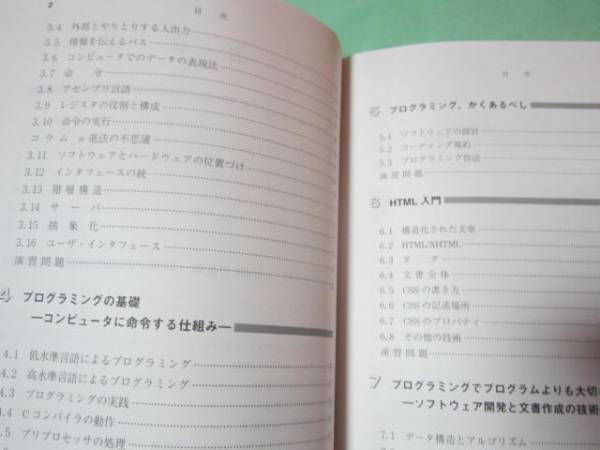 2
目 次
3.4 外部とやりとりする入出力
3.5 情報を伝えるバス
3.6 コンピュータでのデータの表現法
3.7 命 令
3.8 アセンブリ言語
3.9 レジスタの役割と構成
3.10 命令の実行
コ ラ ム n進法の不思議
3.11 ソフトウェアとハードウェアの位置づけ
3.12 インタフェースの統一
3.13 階 層 構 造
3.14 サ ー バ
3.15 抽 象 化
3.16 ユーザ・インタフェース
演 習 問 題
4 プログラミングの基礎
―コンピュータに命令する仕組み―
4.1 低水準言語によるプログラミング
4.2 高水準言語によるプログラミング
4.3 プログラミングの実践
4.4 Cコンパイラの動作
4.5 プリプロセッサの処理
目 次
5 プログラミング,かくあるべし
5.1 ソフトウェアの設計
5.2 コーディング規約
5.3 プログラミング作法
演 習 問 題
6 HTML 入門
6.1 構造化された文章
6.2 HTML/XHTML
6.3 タ グ
6.4 文 書 全 体
6.5 CSSの書き方
6.6 CSSの記述場所
6.7 CSSのプロパティ
6.8 その他の技術
演 習 問 題
7 プログラミングでプログラムよりも大切
―ソフトウェア開発と文書作成の技術
7.1 データ構造とアルゴリズム